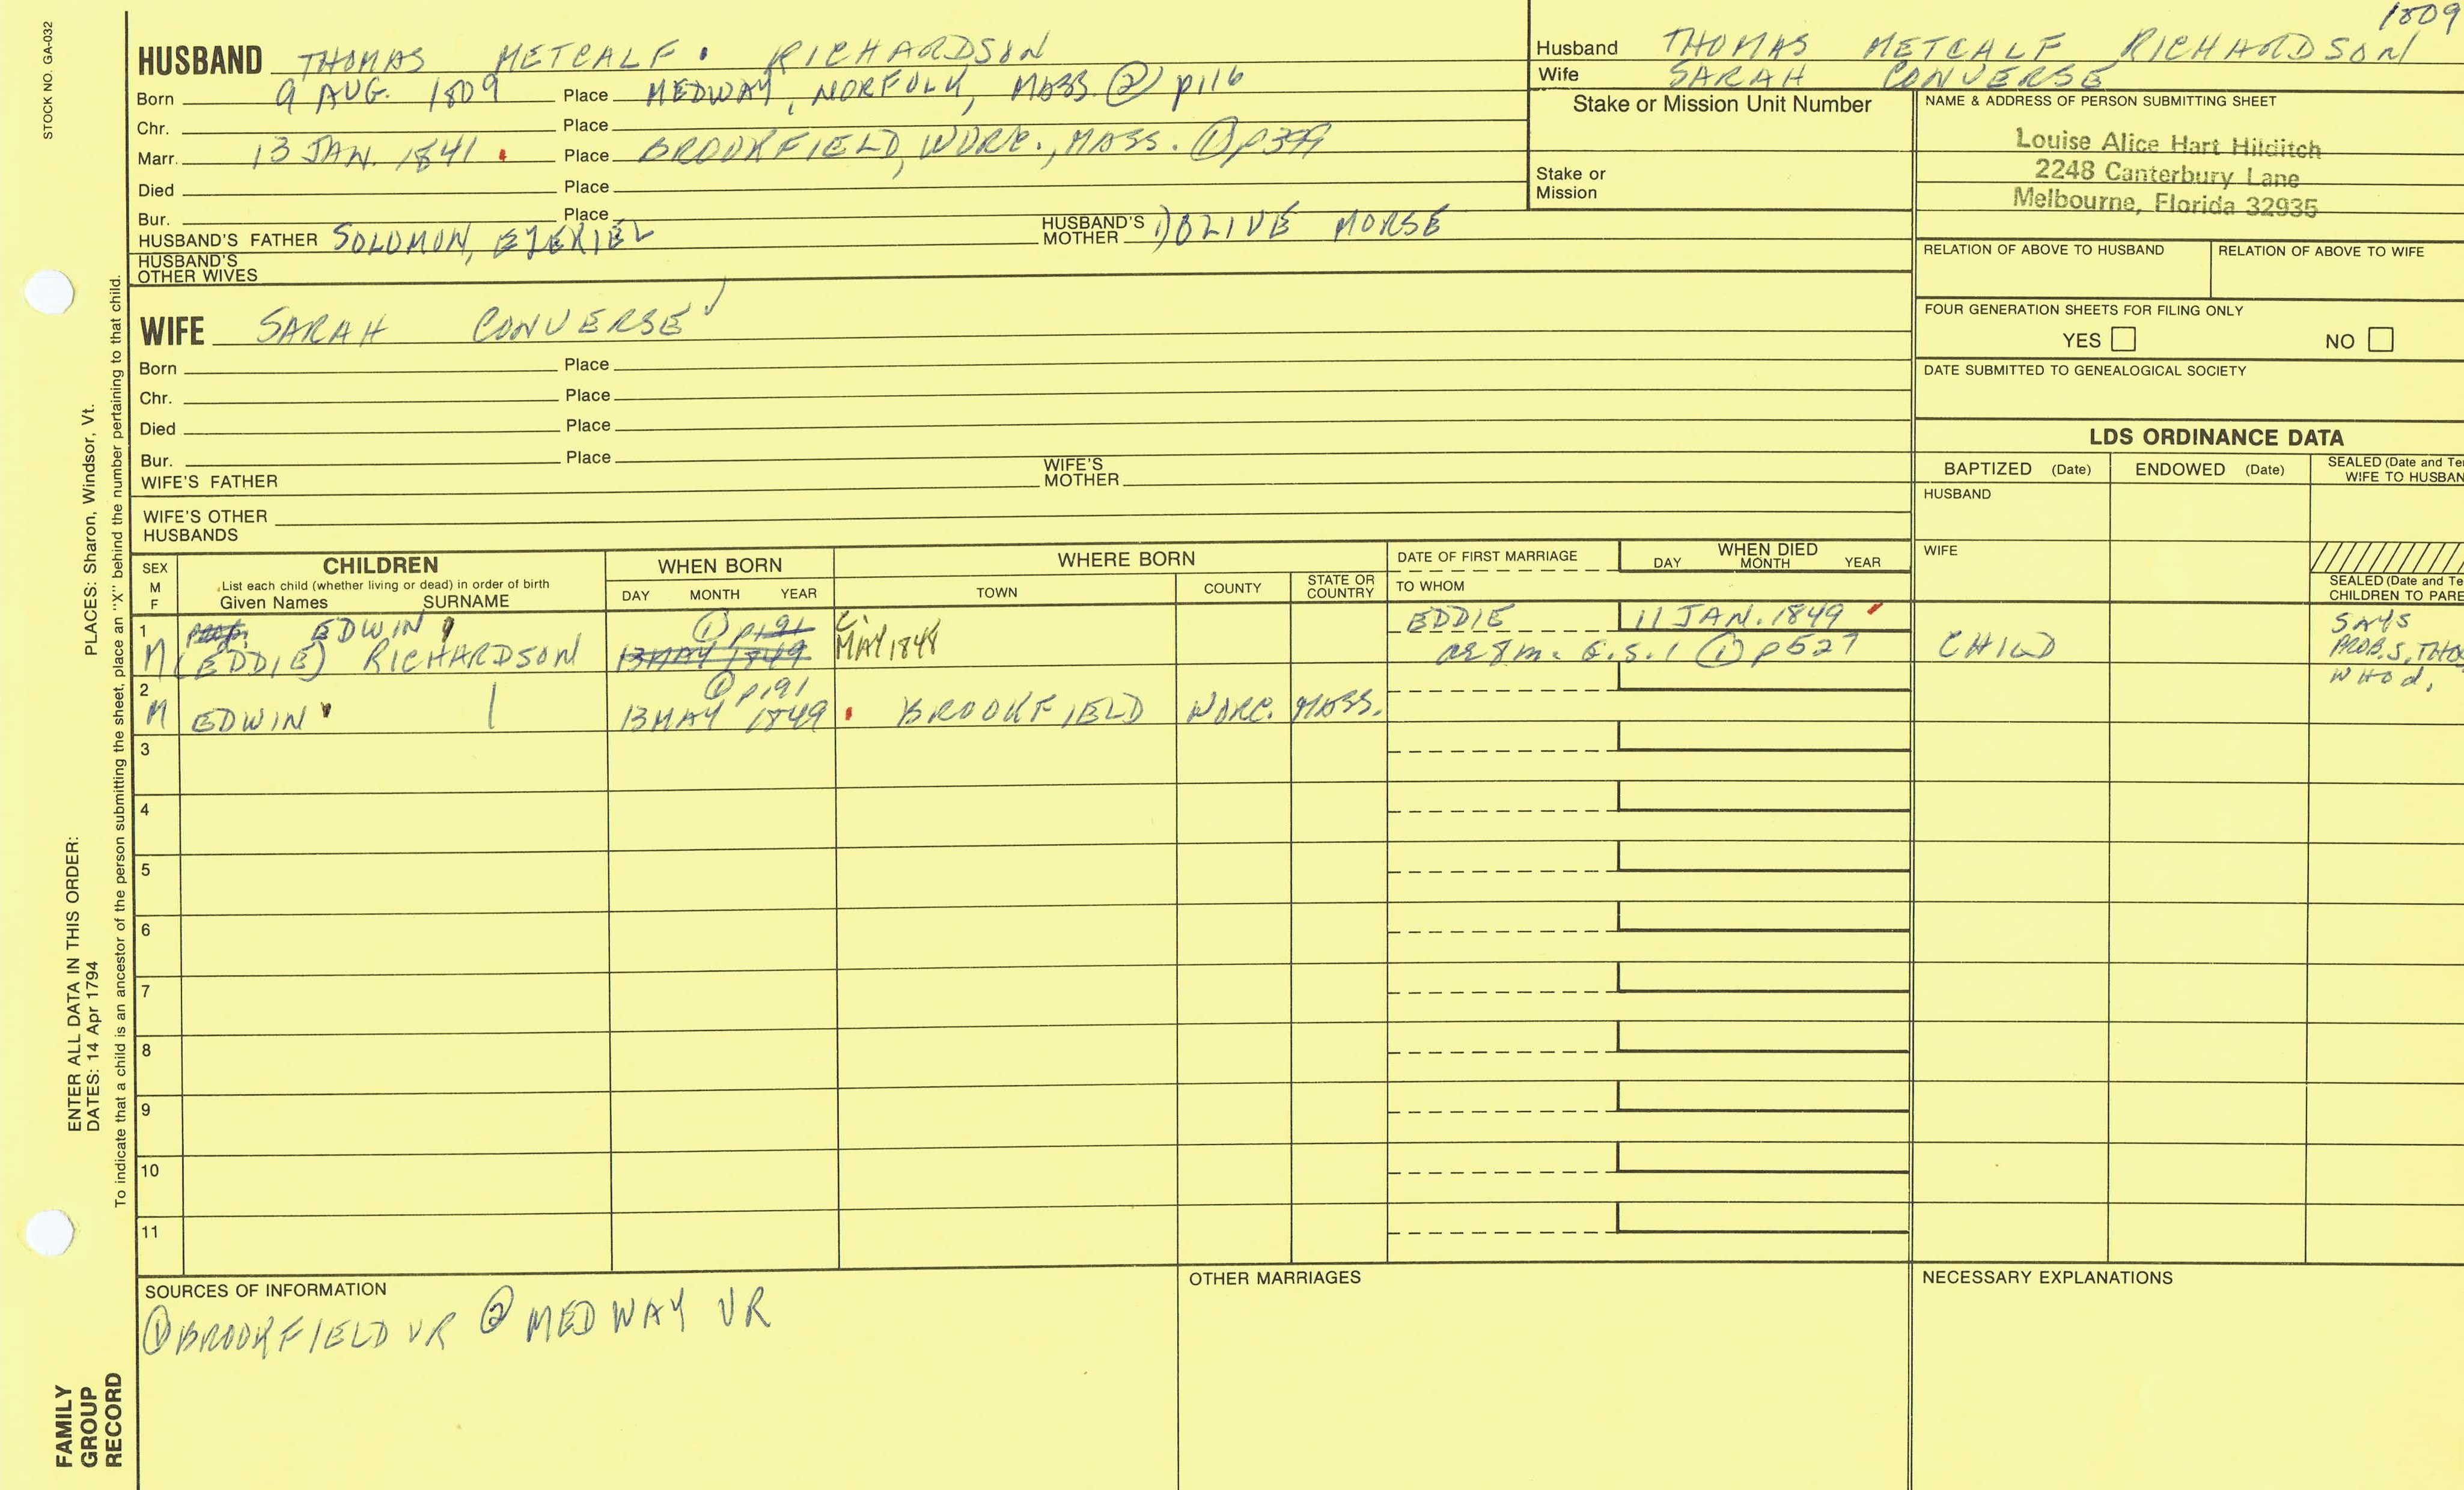 STOCK NO. GA-032
1809
HUSBAND THOMAS METCALF. RICHARDSON
Born 9 AUG. 1809 Place MEDWAY, NORFOLK, MASS. ② p116
Chr. Place
Marr. 13 JAN. 1841 Place BROOKFIELD, WORC., MASS. ① p399
Died Place
Bur. Place
HUSBAND'S FATHER SOLOMON, EZEKIEL HUSBAND'S MOTHER 1) OLIVE MORSE
HUSBAND'S OTHER WIVES
WIFE SARAH CONVERSE
Born Place
Chr. Place
Died Place
Bur. Place
WIFE'S FATHER WIFE'S MOTHER
WIFE'S OTHER HUSBANDS
Husband THOMAS METCALF RICHARDSON
Wife SARAH CONVERSE
Stake or Mission Unit Number
Stake or Mission
NAME & ADDRESS OF PERSON SUBMITTING SHEET
Louise Alice Hart Hilditch
2248 Canterbury Lane
Melbourne, Florida 32935
RELATION OF ABOVE TO HUSBAND RELATION OF ABOVE TO WIFE
FOUR GENERATION SHEETS FOR FILING ONLY
YES NO
DATE SUBMITTED TO GENEALOGICAL SOCIETY
LDS ORDINANCE DATA
BAPTIZED (Date) ENDOWED (Date) SEALED (Date and Te
WIFE TO HUSBAN
HUSBAND
WIFE
SEALED (Date and Te
CHILDREN TO PARE
SEX M F
CHILDREN
List each child (whether living or dead) in order of birth
Given Names SURNAME
WHEN BORN
DAY MONTH YEAR
WHERE BORN
TOWN COUNTY STATE OR COUNTRY
DATE OF FIRST MARRIAGE
TO WHOM
WHEN DIED
DAY MONTH YEAR
1 EDWIN ① p191 C. EDDIE 11 JAN. 1849 SAYS
M (EDDIE) RICHARDSON 13 MAY 1849 MAY 1848 ae 8 m. G.S.1 ① p527 CHILD PROB. S. THOS
WHO d.
2 ① p191
M EDWIN 13 MAY 1849 BROOKFIELD WORC. MASS.
3
4
5
6
7
8
9
10
11
SOURCES OF INFORMATION
① BROOKFIELD VR ② MEDWAY VR
OTHER MARRIAGES
NECESSARY EXPLANATIONS
ENTER ALL DATA IN THIS ORDER:
DATES: 14 Apr 1794 PLACES: Sharon, Windsor, Vt.
To indicate that a child is an ancestor of the person submitting the sheet, place an "X" behind the number pertaining to that child.
FAMILY
GROUP
RECORD